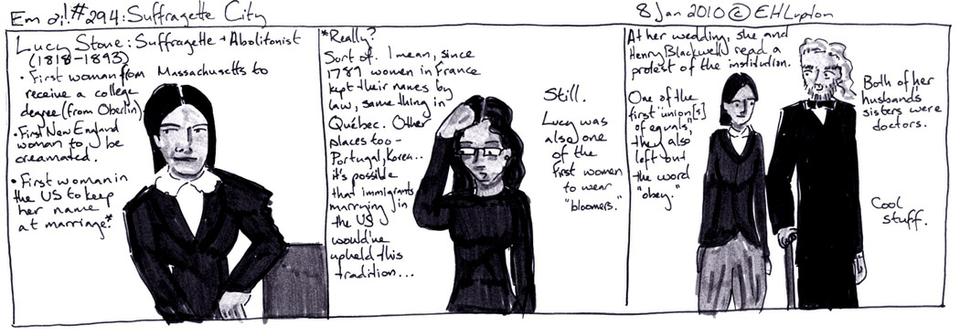 Em oi! #294: Suffragette City
8 Jan 2010 © EHLupton
Lucy Stone: Suffragette + Abolitonist
(1818-1893)
• First woman from Massachusetts to
receive a college
degree (from Oberlin)
• First New England
woman to be
creamated.
• First woman in
the US to keep
her name
at marriage.*
*Really?
Sort of. I mean, since
1789 women in France
kept their names by
law, same thing in
Québec. Other
places too -
Portugal, Korea...
it's possible
that immigrants
marrying in
the US
would've
upheld this
tradition...
Still.
Lucy was
also one
of the
first women
to wear
"bloomers."
At her wedding, she and
Henry Blackwell read a
protest of the institution.
One of the
first union[s]
of equals,
they also
left out
the word
"obey."
Both of her
husband's
sisters were
doctors.
Cool
stuff.